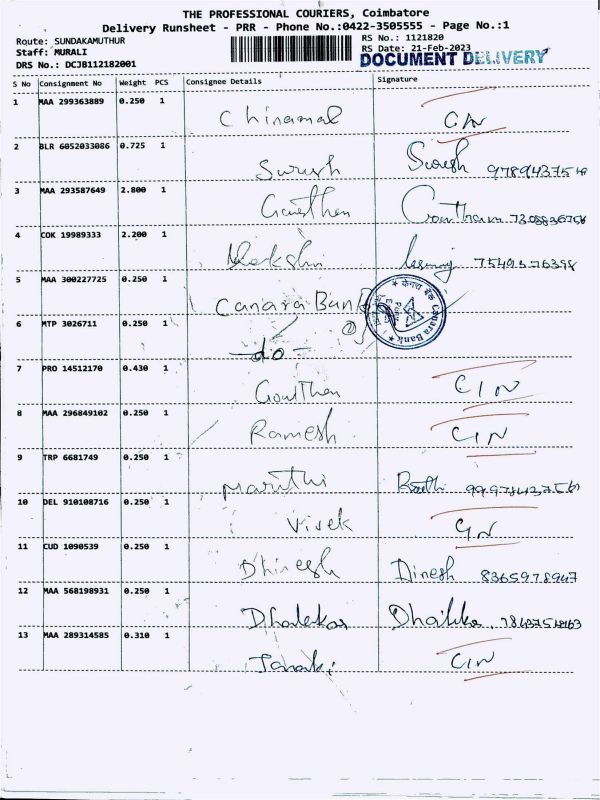 THE PROFESSIONAL COURIERS, Coimbatore
Delivery Runsheet - PRR - Phone No.:0422-3505555 - Page No.:1
Route: SUNDAKAMUTHUR
RS No.: 1121820
Staff: MURALI
RS Date: 21-Feb-2023
DRS No.: DCJB112182001
DOCUMENT DELIVERY
S No Consignment No Weight PCS Consignee Details Signature
1 MAA 299363889 0.250 1 Chinamal
2 BLR 6052033086 0.725 1 Suresh Suresh
3 MAA 293587649 2.800 1 Gowtham Gowtham 7308836758
4 COK 19989333 2.200 1 7549376398
5 MAA 300227725 0.250 1 Canara Bank
केनरा बैंक Canara Bank
6 MTP 3026711 0.250 1 -do-
7 PRO 14512170 0.430 1 Gowthan CIN
8 MAA 296849102 0.250 1 Ramesh CIN
9 TRP 6681749 0.250 1 Maruthi
10 DEL 910108716 0.250 1 Vivek CIN
11 CUD 1090539 0.250 1 Dhinesh Dinesh 8365978947
12 MAA 568198931 0.250 1
13 MAA 289314585 0.310 1 Janaki CIN